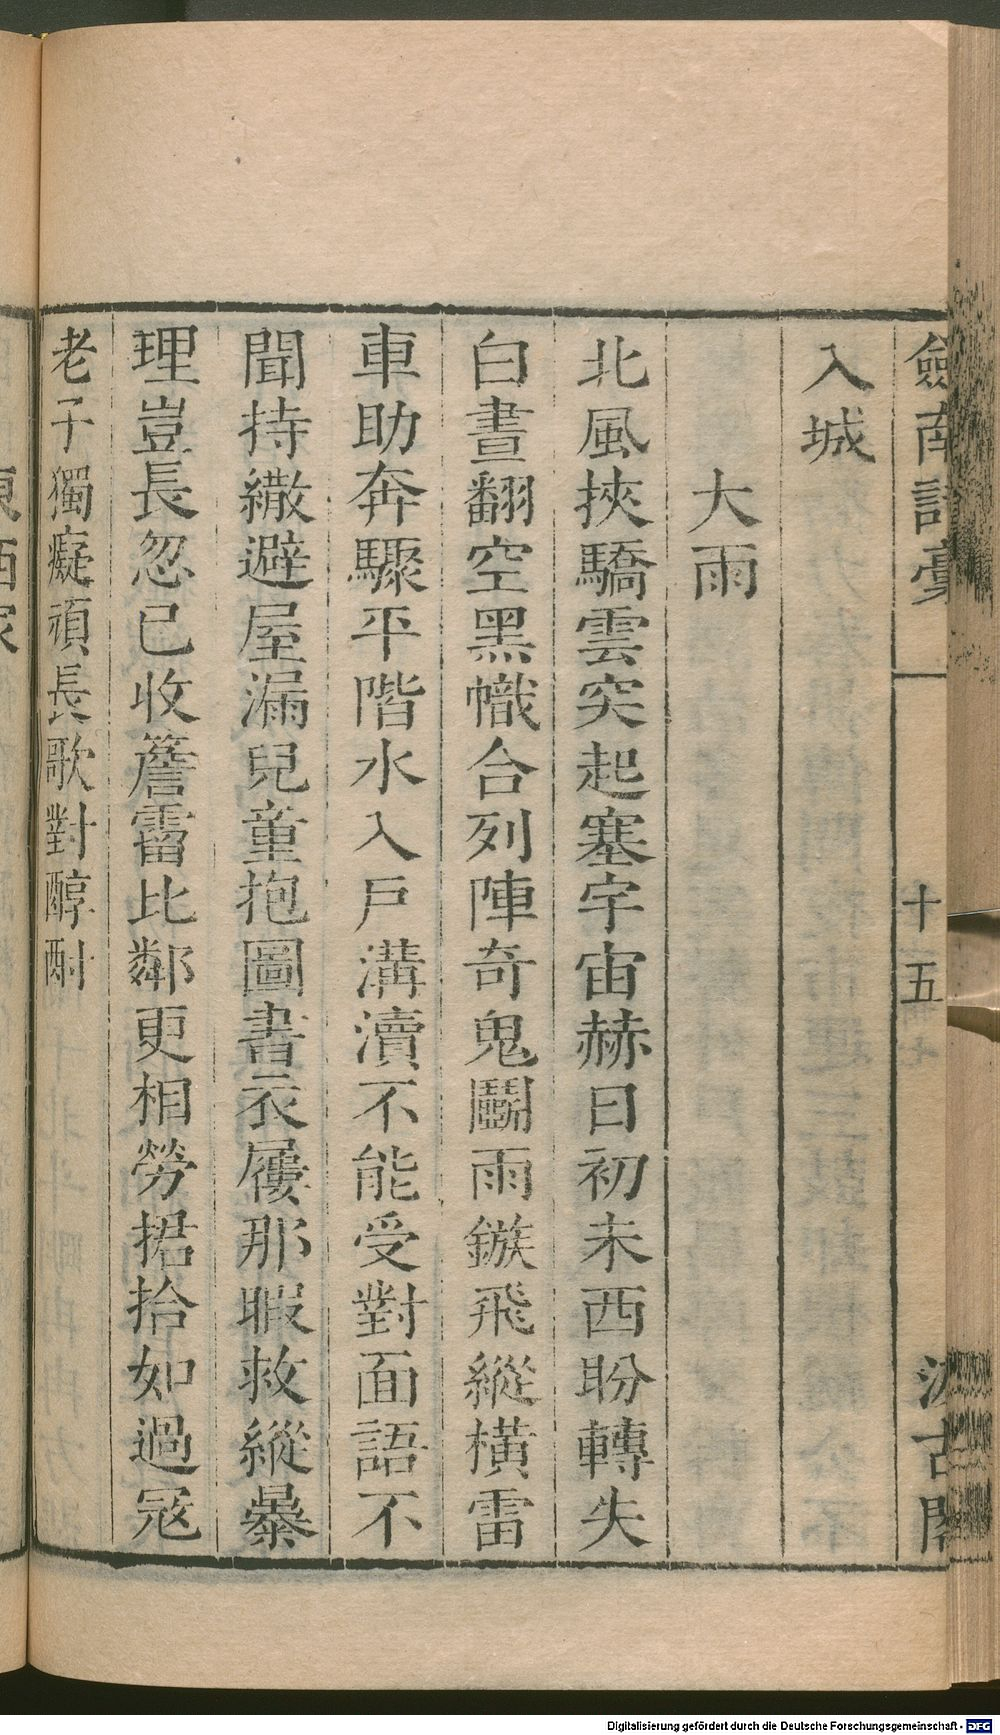 劔南詩稾
十五
汲古閣
入城
大雨
北風挾驕雲突起塞宇宙赫日初未西盼轉失
白晝翻空黑幟合列陣奇鬼鬭雨鏃飛縱橫雷
車助奔驟平階水入戶溝瀆不能受對面語不
聞持繖避屋漏兒童抱圖書衣屨那暇救縱暴
理豈長忽已收簷霤比鄰更相勞捃拾如過冦
老子獨癡頑長歌對醇酎
東西家
Digitalisierung gefördert durch die Deutsche Forschungsgemeinschaft - DFG